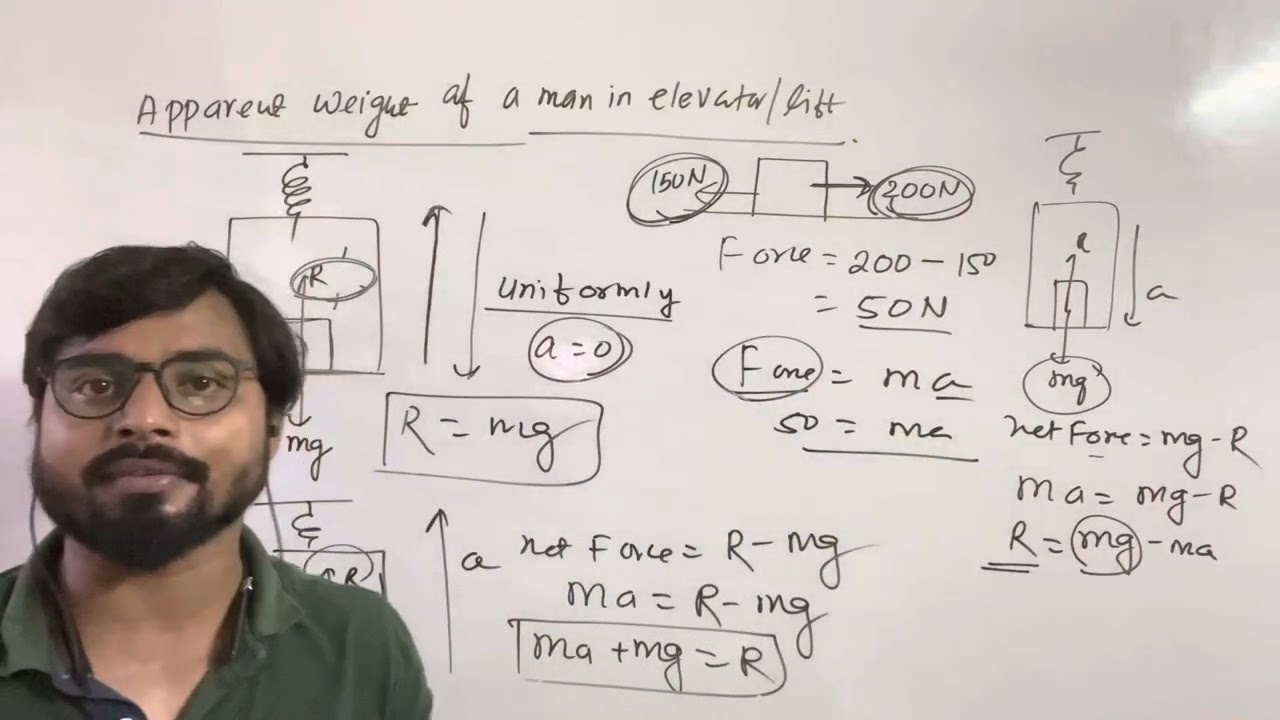 Apparent weight of a man in elevator/lift
R
mg
uniformly
a = 0
R = mg
150N
200N
Force = 200 - 150
= 50N
Force = ma
50 = ma
R
a
mg
net Force = mg - R
ma = mg - R
R = mg - ma
R
a
net Force = R - mg
ma = R - mg
ma + mg = R